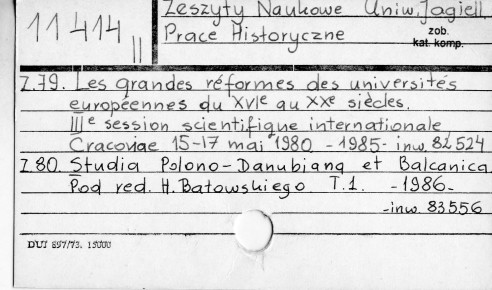 Zeszyty Naukowe Uniw. Jagiell.
11414 II
Prace Historyczne
zob.
kat. komp.
Z.79. Les grandes réformes des universités
européennes du XVIe au XXe siècles.
IIIe session scientifique internationale
Cracoviae 15-17 mai 1980 -1985- inw. 82524
Z.80. Studia Polono-Danubiana et Balcanica
Pod red. H. Batowskiego T.1. -1986-
-inw. 83556
DUJ 897/73. 15000